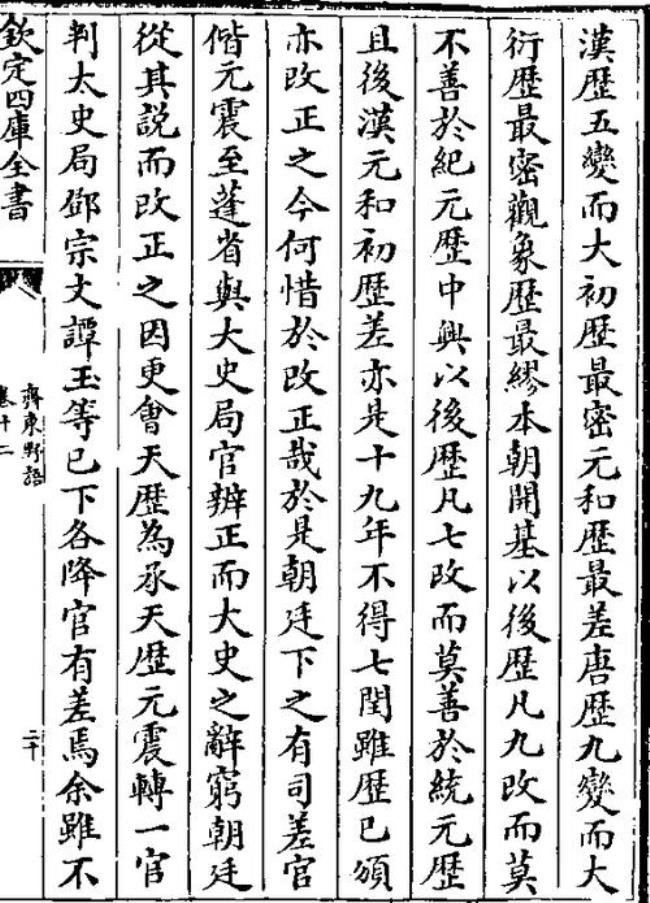 漢歴五變而大初歴最密元和歴最差唐歴九變而大
衍歴最密觀象歴最繆本朝開基以後歴凡九改而莫
不善於紀元歴中興以後歴凡七改而莫善於統元歴
且後漢元和初歴差亦是十九年不得七閏雖歴已頒
亦改正之今何惜於改正哉於是朝廷下之有司差官
偕元震至蓬省與大史局官辨正而大史之辭窮朝廷
從其説而改正之因更㑹天歴為承天歴元震轉一官
判太史局鄧宗文譚玉等已下各降官有差焉余雖不
欽定四庫全書
齊東野語
卷十二
二十